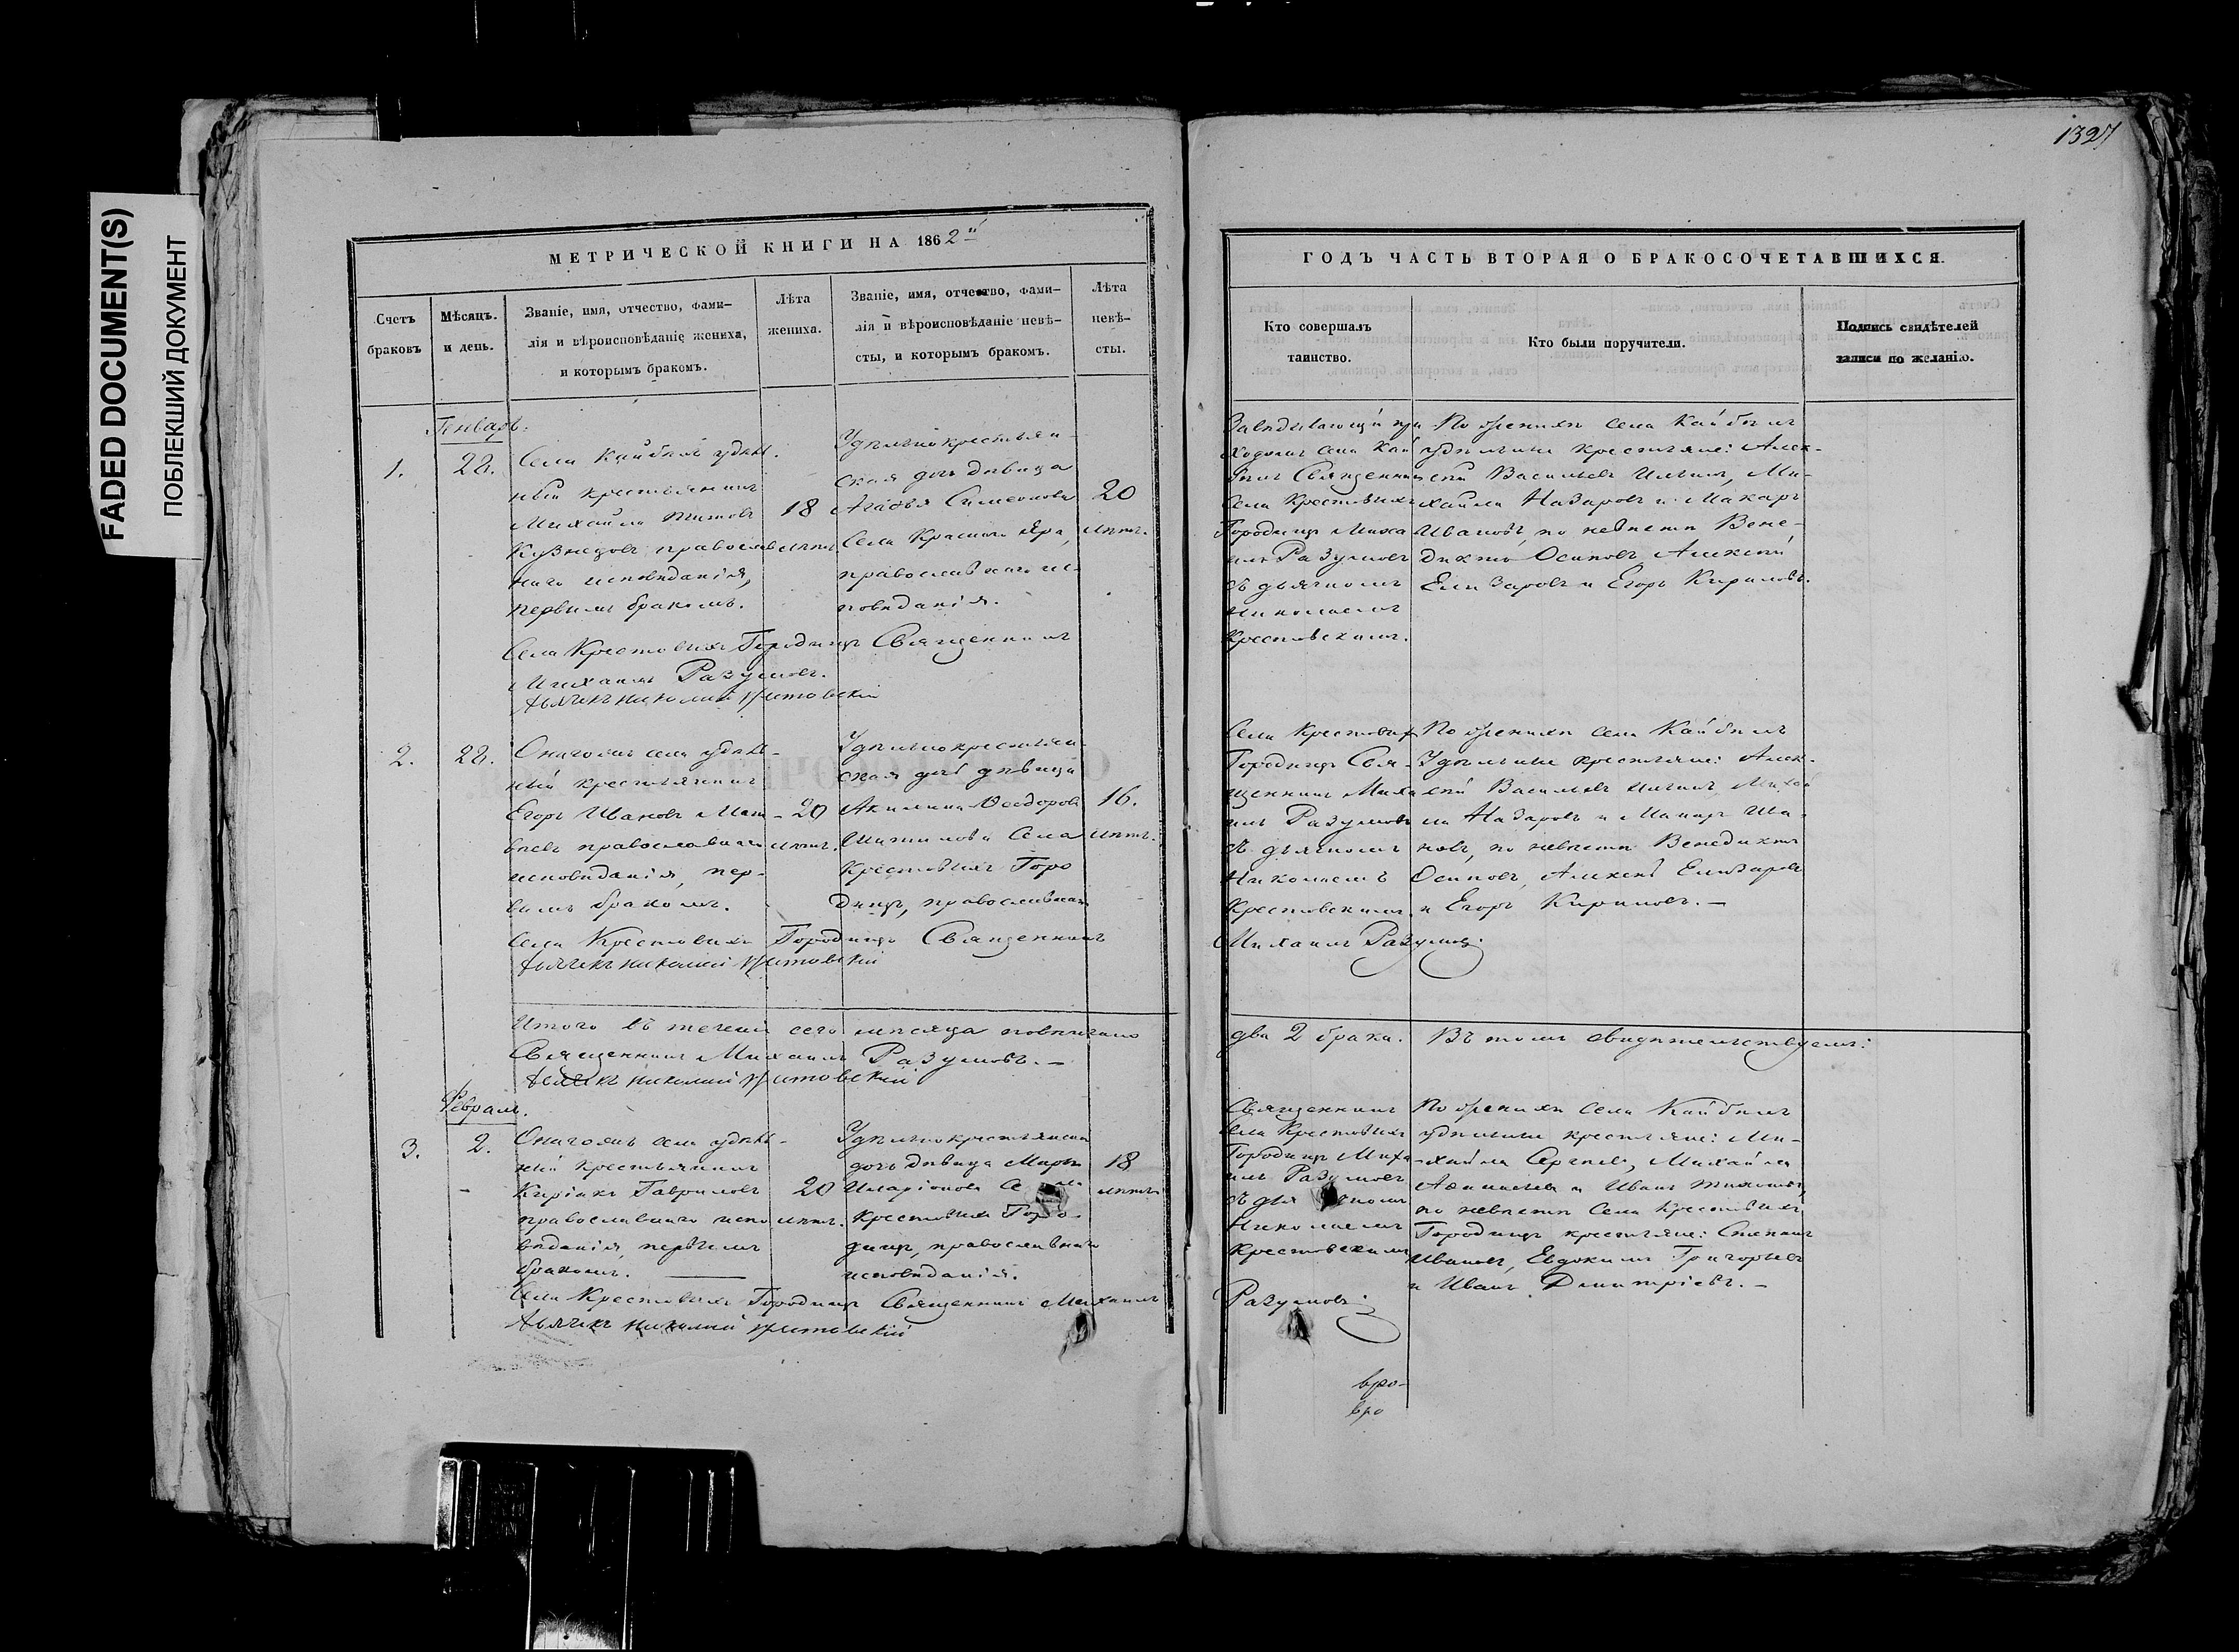 FADED DOCUMENT(S)
ПОБЛЕКШИЙ ДОКУМЕНТ
1327
МЕТРИЧЕСКОЙ КНИГИ НА 1862й
Счетъ
браковъ
Мѣсяцъ.
и день.
Званіе, имя, отчество, фами-
лія и вѣроисповѣданіе жениха,
и которымъ бракомъ.
Лѣта
жениха.
Званіе, имя, отчество, фами-
лія и вѣроисповѣданіе невѣ-
сты, и которымъ бракомъ.
Лѣта
невѣ-
сты.
Генварь.
1.
28.
Села Кайбелъ удѣль-
ный крестьянинъ
Михаилъ Титовъ
Кузнецовъ православ
наго исповѣданія,
первымъ бракомъ.
18
лѣтъ.
Удѣльнокрестьян-
ская дочь дѣвица
Агафья Симеонова
Села Краснаго Яра,
православнаго ис-
повѣданія.
20
лѣтъ.
Села Крестовыхъ Городищъ Священникъ
Михаилъ Разумовъ.
Дьячекъ Николай Крестовскій
2.
28.
Онагожъ села удѣль-
ный крестьянинъ
Егоръ Ивановъ Мат-
вѣевъ православнаго
исповѣданія, пер-
вымъ бракомъ.
20
лѣтъ.
Удѣльнокрестьян-
ская дочь дѣвица
Акилина Ѳеодорова
Села
Крестовыхъ Горо
дищъ, православнаго
16.
лѣтъ.
Села Крестовыхъ Городищъ Священникъ
Дьячекъ Николай Крестовскій
Итого въ теченіи сего мѣсяца повѣнчано
Священникъ Михаилъ Разумовъ. —
Дьячекъ Николай Крестовскій
Февраль.
3.
2.
Онагожъ села удѣль-
ный крестьянинъ
Киріакъ Гавриловъ
православнаго испо
вѣданія, первымъ
бракомъ. —
20
лѣтъ.
Удѣльнокрестьянская
дочь дѣвица Марѳа
Иларіонова Села
Крестовыхъ Горо-
дищъ, православнаго
исповѣданія.
18
лѣтъ
Села Крестовыхъ Городищъ Священникъ Михаилъ
Дьячекъ Николай Крестовскій
ГОДЪ ЧАСТЬ ВТОРАЯ О БРАКОСОЧЕТАВШИХСЯ.
Кто совершалъ
таинство.
Кто были поручители.
Подпись свидѣтелей
записи по желанію.
Завѣдывающій при
ходомъ села Кай
белъ Священникъ
села Крестовыхъ
Городищъ Миха
илъ Разумовъ
съ дьячкомъ
Николаемъ
Крестовскимъ.
По женихѣ села Кайбелъ
удѣльные крестьяне: Алек-
сѣй Васильевъ Ильинъ, Ми-
хайла Назаровъ и Макаръ
Ивановъ, по невѣстѣ Вене-
диктъ Осиповъ, Алексѣй
Елизаровъ и Егоръ Кириловъ.
Села Крестовыхъ
Городищъ Свя-
щенникъ Миха
илъ Разумовъ
съ дьячкомъ
Николаемъ
Крестовскимъ.
По женихѣ села Кайбелъ
Удѣльные крестьяне: Алек-
сѣй Васильевъ Ильинъ, Михай
ла Назаровъ и Макаръ Ива-
новъ, по невѣстѣ Венедиктъ
Осиповъ, Алексѣй Елизаровъ
и Егоръ Кириловъ. —
Михаилъ Разумовъ.
два 2 брака. Въ томъ свидѣтельствуемъ:
Священникъ
села Крестовыхъ
Городищъ Миха
илъ Разумовъ
съ дьячкомъ
Николаемъ
Крестовскимъ
По женихѣ села Кайбелъ
удѣльные крестьяне: Ми-
хайла Сергѣевъ, Михайла
Афанасьевъ и Иванъ
по невѣстѣ Села Крестовыхъ
Городищъ крестьяне: Степанъ
Ивановъ, Евдокимъ Григорьевъ
и Иванъ Димитріевъ. —
Разумовъ.
вро-
вро